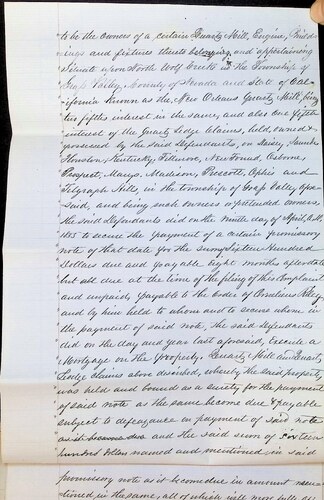 to be the owners of a certain Quartz Mill, Engine, Build-
ings and fixtures thereto belonging and appertaining
situate upon North Wolf Creek in the Township of
Grass Valley, County of Nevada and State of Cal-
ifornia known as the New Orleans Quartz Mill, being
two fifths interest in the same, and also one fifth
interest of the Quartz Ledge Claims, held, owned &
possessed by the said Defendants, on Massey,
Houston, Kentucky, Fillmore, New Osborne,
Prospect, Marys, Madison, Prescott, Ophir and
Telegraph Hills, in the township of Grass Valley afore-
said, and being such owners or pretended owners
the said Defendants did on the ninth day of April, A.D.
1855 to secure the payment of a certain promissory
note of that date for the sum of sixteen Hundred
Dollars due and payable eight months after date
but all due at the time of the filing of this Complaint
and unpaid, payable to the order of Cornelius Riley
and by him held to whom and to secure whom in
the payment of said note, the said defendants
did on the day and year last aforesaid, execute a
Mortgage on the property, Quartz Mill and Quartz
Ledge claims above described, whereby the said property
was held and bound as a surety for the payment
of said note as the same become due & payable
subject to defeasance on payment of said note
as it became due and the said sum of sixteen
hundred dollars named and mentioned in said
promissory note as it become due in amount men-
tioned in the same, all of which will more fully